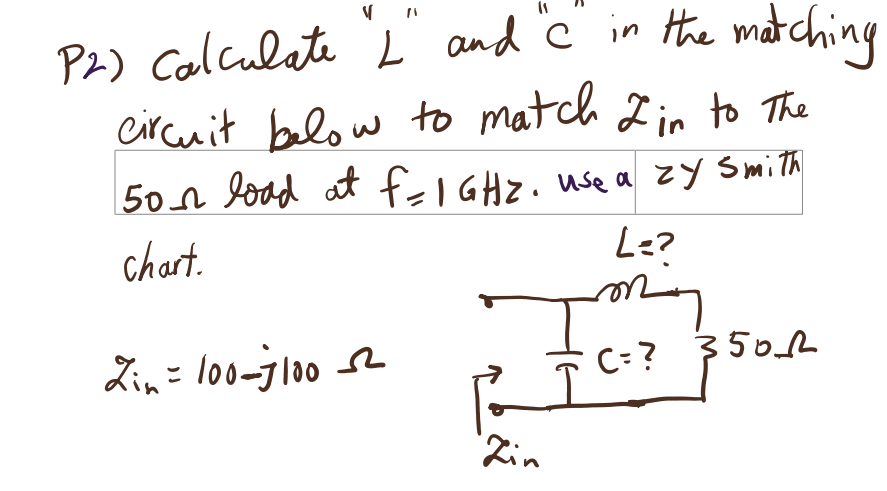 P2) Calculate "L" and "C" in the matching
circuit below to match Zin to the
50Ω load at f=1GHz. use a zy smith
chart.
L=?
Zin = 100-j100 Ω
C=?
50Ω
Zin